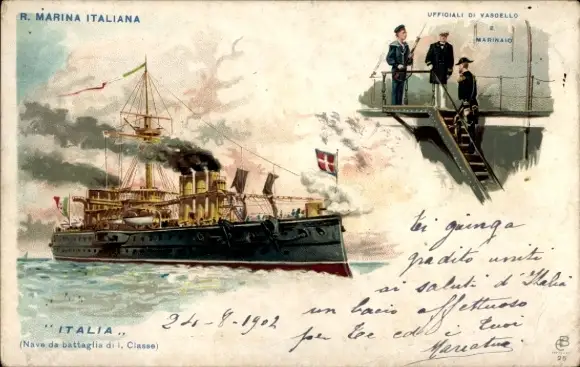 R. MARINA ITALIANA
UFFICIALI DI VASCELLO
E
MARINAIO
Ti giunga
gradito uniti
ai saluti d'Italia
un bacio affettuoso
per te ed i tuoi
"ITALIA"
24-8-1902
(Nave da battaglia di 1, Classe)